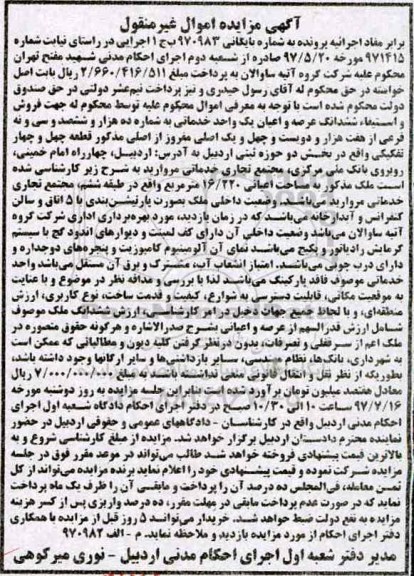 آگهی مزایده اموال غیرمنقول
برابر مفاد اجرائیه پرونده به شماره بایگانی ۹۷۰۹۸۳ ب ج ۱ اجرایی در راستای نیابت شماره
۹۷۱۴۱۵ مورخه ۹۷/۵/۲۰ صادره از شعبه دوم اجرای احکام مدنی شهید مفتح تهران
محکوم علیه شرکت گروه آتیه ساوالان به پرداخت مبلغ ۲/۶۶۰/۴۱۶/۵۱۱ ریال بابت اصل
خواسته در حق محکوم له آقای رسول حیدری و نیز پرداخت نیم‌عشر دولتی در حق صندوق
دولت محکوم شده است با توجه به معرفی اموال محکوم علیه توسط محکوم له جهت فروش
و استیفاء ششدانگ عرصه و اعیان یک واحد خدماتی به شماره ده هزار و ششصد و سی و نه
فرعی از هفت هزار و دویست و چهل و یک اصلی مفروز از اصلی مذکور قطعه چهل و چهار
تفکیکی واقع در بخش دو حوزه ثبتی اردبیل به آدرس: اردبیل، چهارراه امام خمینی،
روبروی بانک ملی مرکزی، مجتمع تجاری خدماتی مروارید به شرح زیر کارشناسی شده
است ملک مذکور به مساحت اعیانی ۱۶/۲۲۰ مترمربع واقع در طبقه ششم مجتمع تجاری
خدماتی مروارید می‌باشد. وضعیت داخلی ملک بصورت پارتیشن‌بندی با ۵ اتاق و سالن
کنفرانس و آبدارخانه می‌باشد که در زمان بازدید، مورد بهره‌برداری اداری شرکت گروه
آتیه ساوالان می‌باشد وضعیت داخلی آن دارای کف لمینت و دیوارهای اندود گچ با سیستم
گرمایش رادیاتور و پکیج می‌باشد نمای آن آلومینیوم کامپوزیت و پنجره‌های دوجداره و
دارای درب چوبی می‌باشد. امتیاز انشعاب آب، مشترک و برق آن مستقل می‌باشد واحد
خدماتی موصوف فاقد پارکینگ می‌باشد لذا با بررسی و مداقه نظر در موضوع و با عنایت
به موقعیت مکانی، قابلیت دسترسی به شوارع، کیفیت و قدمت ساخت، نوع کاربری، ارزش
منطقه‌ای، و با لحاظ جمیع جهات دخیل در امر کارشناسی، ارزش ششدانگ ملک موصوف
شامل ارزش قدرالسهم از عرصه و اعیانی بشرح صدرالاشاره و هرگونه حقوق متصوره در
ملک اعم از سرقفلی و تصرفات، بدون درنظر گرفتن کلیه دیون و مطالباتی که ممکن است
به شهرداری، بانک‌ها، نظام مهندسی، سایر بازداشتی‌ها و سایر ارگانها وجود داشته باشد،
بطوریکه از نظر نقل و انتقال قانونی منعی نداشته باشد، به مبلغ ۷/۰۰۰/۰۰۰/۰۰۰ ریال
معادل هفتصد میلیون تومان برآورد شده است بنابراین جلسه مزایده به روز دوشنبه مورخه
۹۷/۷/۱۶ ساعت ۱۰ الی ۱۰/۳۰ صبح در دفتر اجرای احکام دادگاه شعبه اول اجرای
احکام مدنی اردبیل واقع در کارشناسان - دادگاههای عمومی و حقوقی اردبیل در حضور
نماینده محترم دادستان اردبیل برگزار خواهد شد. مزایده از مبلغ کارشناسی شروع و به
بالاترین قیمت پیشنهادی فروخته خواهد شد طالب می‌تواند در موعد مقرر فوق در جلسه
مزایده شرکت نموده و قیمت پیشنهادی خود را اعلام نماید برنده مزایده می‌تواند از کل
ثمن معامله، فی‌المجلس ده درصد آن را پرداخت و مابقی آن را ظرف یک ماه پرداخت
نماید که در صورت عدم پرداخت مابقی در مهلت مقرر، ده درصد واریزی پس از کسر هزینه
مزایده به نفع دولت ضبط خواهد شد. خریدار می‌تواند ۵ روز قبل از مزایده با همکاری
دفتر اجرای احکام از مورد مزایده بازدید و ملاحظه نماید. م - الف ۹۷۰۹۸۲
مدیر دفتر شعبه اول اجرای احکام مدنی اردبیل - نوری میرکوهی